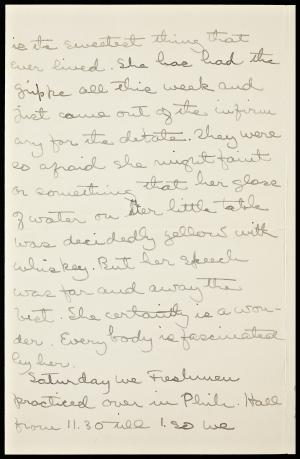 is the sweetest thing that
ever lived. She has had the
grippe all this week and
just came out of the infirm
ary for the debate. They were
so afraid she might faint
or something that her glass
of water on her little table
was decidedly yellow with
whiskey. But her speech
was far and away the
best. She certainly is a won-
der. Everybody is fascinated
by her.
Saturday we Freshmen
practiced over in Phil. Hall
from 11.30 till 1.30 we